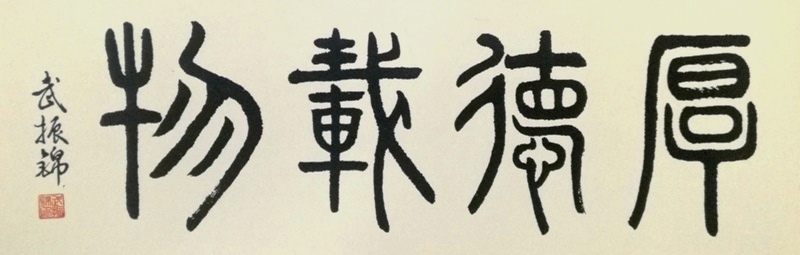 厚德載物
武振錦